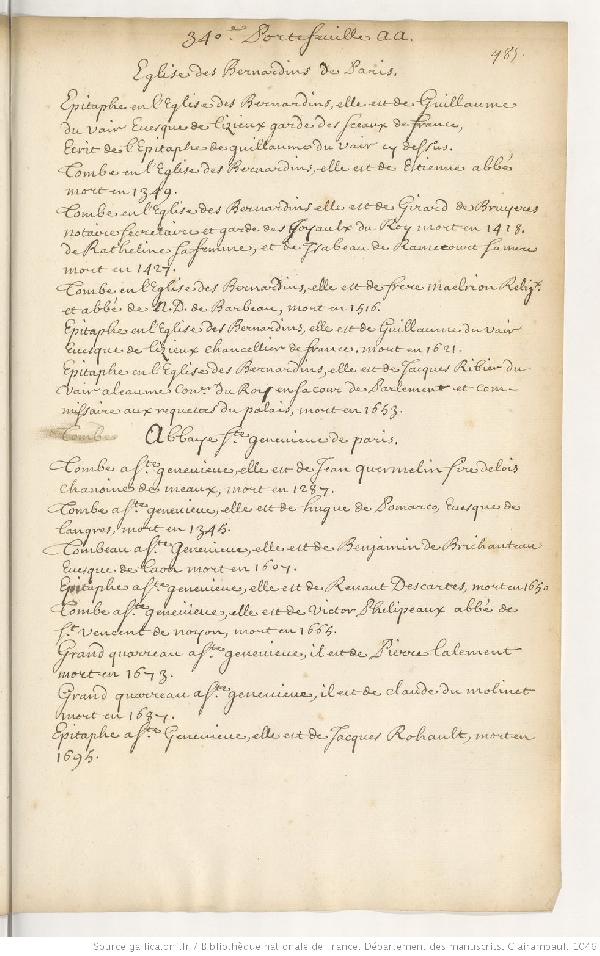 34o.e Portefeuille aa.
485.
Eglise des Bernardins de Paris.
Epitaphe en l'Eglise des Bernardins, elle est de Guillaume
du vair Euesque de lizieux garde des sceaux de france,
Ecrit de l'Epitaphe de guillaume du vair cy dessus.
Tombe en l'Eglise des Bernardins, elle est de Estienne abbé
mort en 1349.
Tombe en l'Eglise des Bernardins elle est de Girard de Bruyeres
notaire secretaire et garde des Joyaulx du Roy mort en 1418.
de Katheline sa femme, et de Isabeau de Ramecourt sa mere
mort en 1427.
Tombe en l'Eglise des Bernardins, elle est de frere Relig.x
et abbé de N.D. de Barbeau, mort en 1516.
Epitaphe en l'Eglise des Bernardins, elle est de Guillaume du vair
Euesque de lizieux chancellier de france, mort en 1621.
Epitaphe en l'Eglise des Bernardins, elle est de Jacques Ribier du
vair aleaume Con.er du Roy en sa cour de Parlement et com-
missaire aux requetes du palais, mort en 1653.
Tombe Abbaye s.te genevieve de paris.
Tombe a s.te genevieue, elle est de Jean sire delois
chanoine de meaux, mort en 1287.
Tombe a s.te genevieue, elle est de hugue de Pomarco, Euesque de
langres, mort en 1345.
Tombeau a s.te Genevieue, elle est de Benjamin de Brichanteau
Euesque de laon mort en 1607.
Epitaphe a s.te genevieue, elle est de Renaut Descartes, mort en 1650
Tombe a s.te genevieue, elle est de Victor Philipeaux abbé de
s.t Vencent de noyon, mort en 1665.
Grand quarreau a s.te genevieue, il est de Pierre lalement
mort en 1673.
Grand quarreau a s.te genevieue, il est de claude du molinet
mort en 1687.
Epitaphe a s.te Genevieue, elle est de Jacques Rohault, mort en
1695.
Source gallica.bnf.fr / Bibliothèque nationale de France. Département des manuscrits. Clairambault 1046